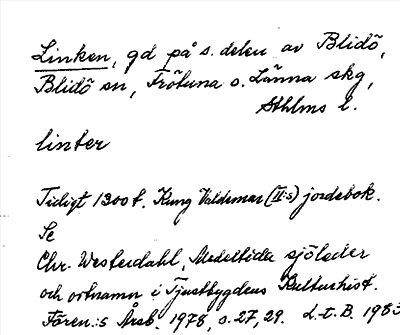 Linken, gd på s. delen av Blidö,
Blidö sn, Frötuna o. Länna skg,
Sthlms l.
linter
Tidigt 1300t. Kung Valdemar (II:s) jordebok.
Se
Chr. Westerdahl, Medeltida sjöleder
och ortnamn i Tjustbygdens Kulturhist.
Fören:s Årsb. 1978, s. 27, 29. L-t. B. 1983